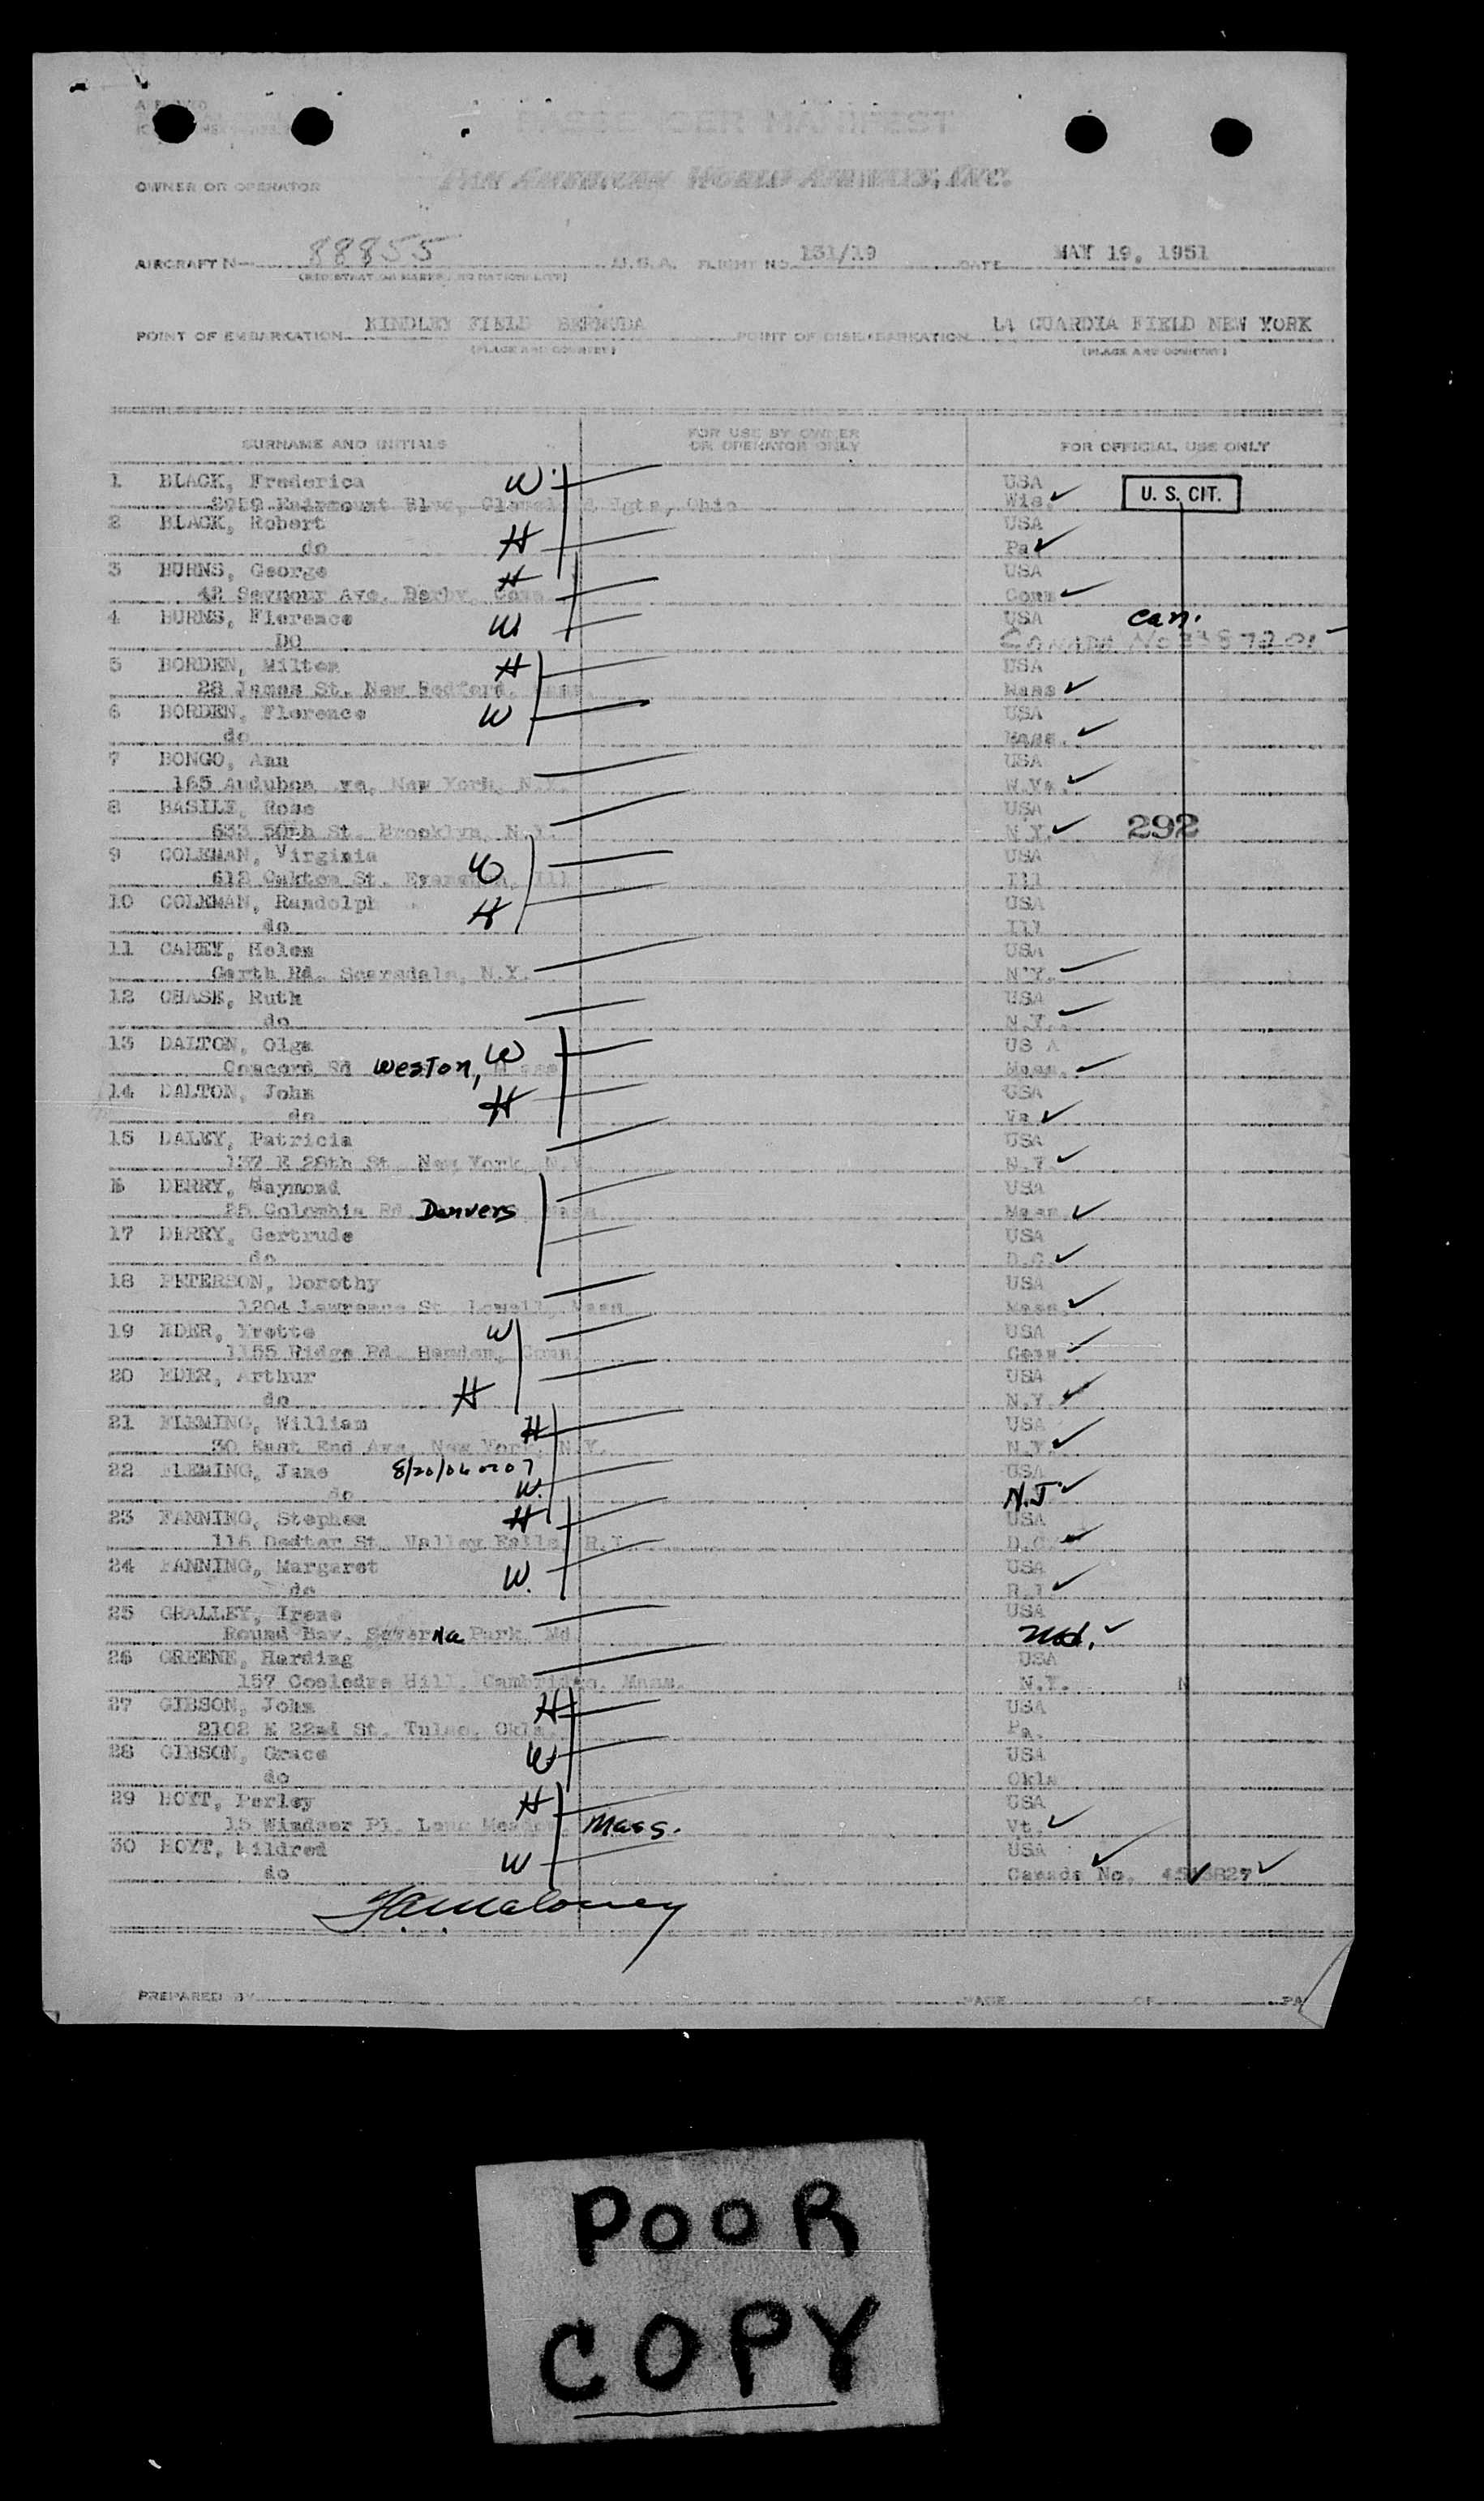 PASSENGER MANIFEST
OWNER OR OPERATOR PAN AMERICAN WORLD AIRWAYS, INC.
AIRCRAFT N 88855 U.S.A. FLIGHT NO. 131/19 DATE MAY 19, 1951
POINT OF EMBARKATION KINDLEY FIELD BERMUDA POINT OF DISEMBARKATION LA GUARDIA FIELD NEW YORK
(PLACE AND COUNTRY) (PLACE AND COUNTRY)
SURNAME AND INITIALS FOR USE BY OWNER OR OPERATOR ONLY FOR OFFICIAL USE ONLY
1 BLACK, Frederica W. USA
Fairmount Blvd, Cleveland Hgts, Ohio Wis. U. S. CIT.
2 BLACK, Robert USA
do H Pa
3 BURNS, George H USA
42 Seymour Ave. Derby, Conn Conn
4 BURNS, Florence W. USA can.
DO Canada No
5 BORDEN, Milton H USA
28 James St. New Bedford, Mass. Mass
6 BORDEN, Florence W USA
do Mass.
7 BONGO, Ann USA
165 Audubon Ave, New York, N.Y. W.Va.
8 BASILE, Rose USA
633 50th St. Brooklyn, N.Y. N.Y. 292
9 COLEMAN, Virginia W USA
612 Oakton St. Evanston, Ill Ill
10 COLEMAN, Randolph H USA
do Ill
11 CAREY, Helen USA
Garth Rd. Scarsdale, N.Y. N.Y.
12 CHASE, Ruth USA
do N.Y.
13 DALTON, Olga W US A
Concord Rd Weston, Mass Mass.
14 DALTON, John H USA
do Va
15 DALEY, Patricia USA
137 E 28th St. New York, N.Y. N.Y.
DERRY, Raymond USA
25 Colombia Rd Danvers Mass. Mass
17 DERRY, Gertrude USA
do D.C.
18 PETERSON, Dorothy USA
1204 Lawrence St. Lowell, Mass Mass.
19 EDER, Yvette W USA
1155 Ridge Rd. Hamden, Conn. Conn
20 EDER, Arthur USA
do H N.Y.
21 FLEMING, William H USA
30 East End Ave, New York, N.Y. N.Y.
22 FLEMING, Jane 8/20/06 USA
do W. N.J
23 FANNING, Stephen H USA
116 St. Valley Falls, R.I. D.C.
24 FANNING, Margaret USA
do W. R.I.
25 GRALLEY, Irene USA
Round Bay, Severna Park, Md Md.
26 GREENE, Harding USA
157 Cooledge Hill, Cambridge, Mass. N.Y. N
27 GIBSON, John H USA
2102 E 22nd St. Tulsa, Okla. Pa.
28 GIBSON, Grace W USA
do Okla
29 HOYT, Perley H USA
15 Windsor Pl. Long Meadow, Mass. Vt.
30 HOYT, Mildred W USA
do Canada No.
PREPARED BY PAGE OF
POOR
COPY